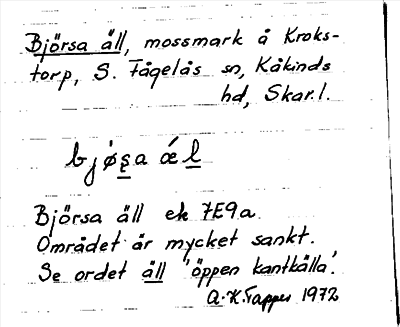 Björsa äll, mossmark å Kroks-
torp, S. Fågelås sn, Kåkinds
hd, Skar.l.
bjøʂa ǽl
Björsa äll ek 7E9a
Området är mycket sankt.
Se ordet äll 'öppen kantkälla'.
A.K. Tapper 1972